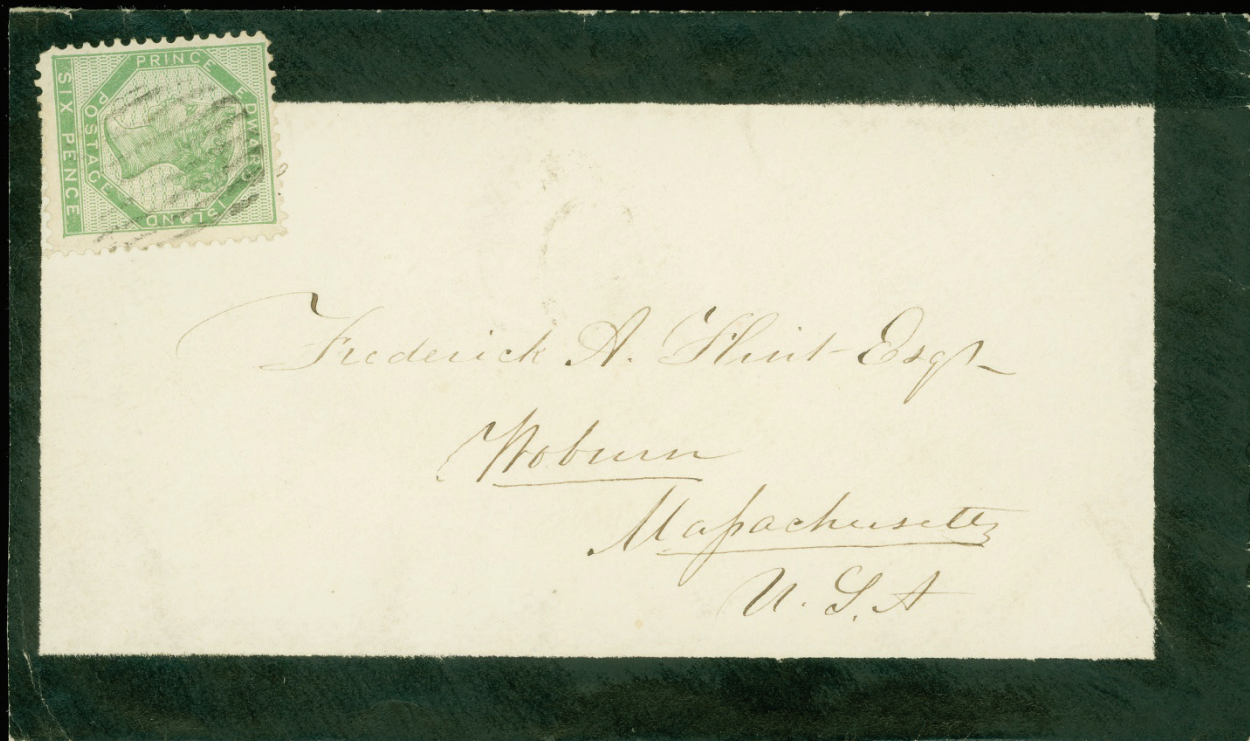 PRINCE EDWARD ISLAND
POSTAGE
SIX PENCE
Frederick A. Flint Esqr
Woburn
Maſsachusetts
U. S. A